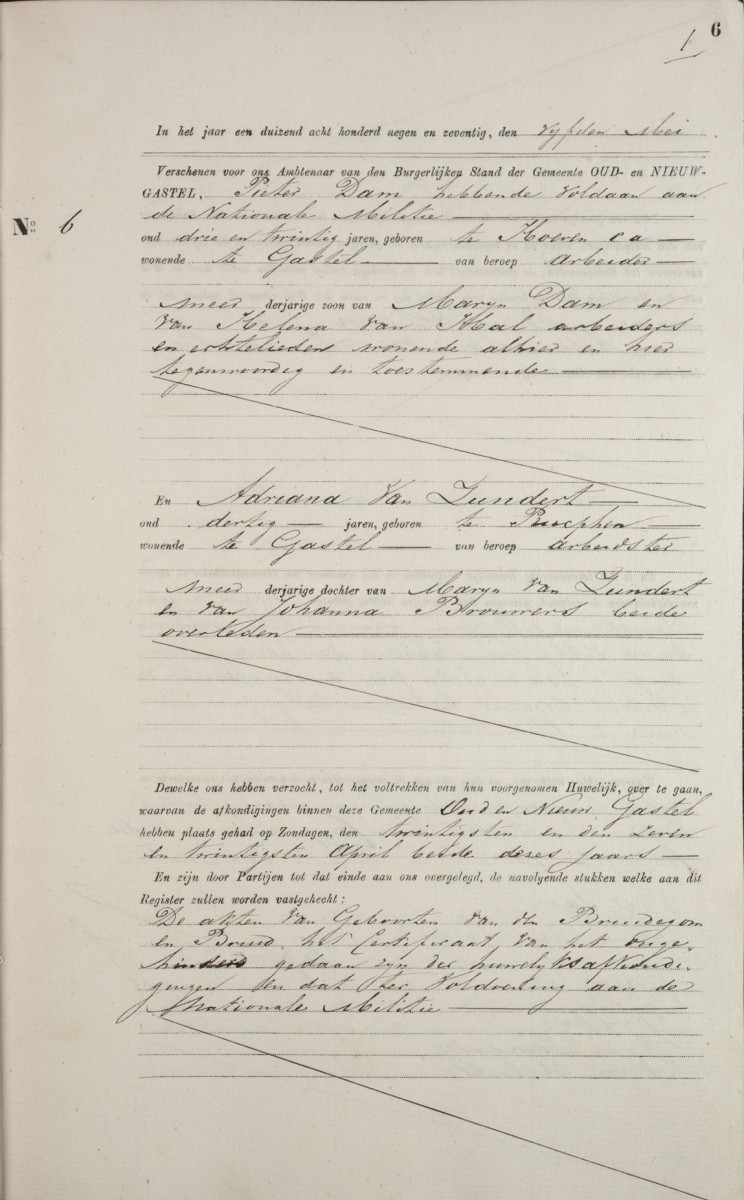 6
1
In het jaar een duizend acht honderd negen en zeventig, den vyfden Mei
Verschenen voor ons Ambtenaar van den Burgerlijken Stand der Gemeente OUD- en NIEUW-
GASTEL, Pieter Dam hebbende voldaan aan
de Nationale Militie
No 6
oud drie en twintig jaren, geboren te Hoeven c a
wonende te Gastel van beroep arbeider
meer derjarige zoon van Maryn Dam en
van Helena van Hal arbeiders
en echtelieden wonende alhier en hier
tegenwoordig en toestemmende
En Adriana Van Zundert
oud dertig jaren, geboren te Rucphen
wonende te Gastel van beroep arbeidster
meer derjarige dochter van Maryn Van Zundert
en van Johanna Brouwers beide
overleden
Dewelke ons hebben verzocht, tot het voltrekken van hun voorgenomen Huwelijk, over te gaan,
waarvan de afkondigingen binnen deze Gemeente Oud en Nieuw Gastel
hebben plaats gehad op Zondagen, den twintigsten en den zeven
en twintigsten April beide dezes jaars
En zijn door Partijen tot dat einde aan ons overgelegd, de navolgende stukken welke aan dit
Register zullen worden vastgehecht:
De akten van Geboorten van den Bruidegom
en Bruid, het Certificaat van het onge,
hinderd gedaan zyn der huwelyksafkondi,
gingen en dat ter voldoening aan de
Nationale Militie